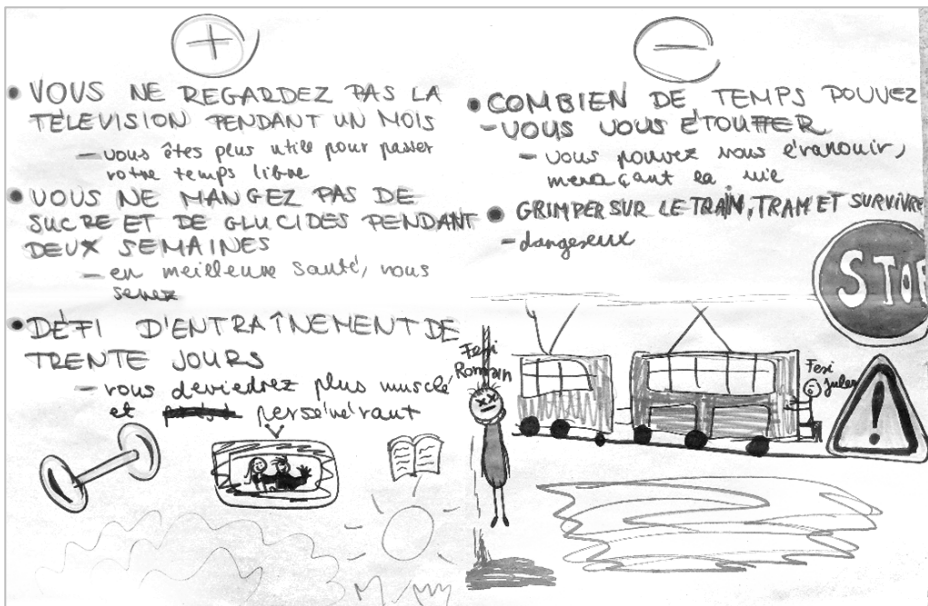 +
VOUS NE REGARDEZ PAS LA
TÉLÉVISION PENDANT UN MOIS
- vous êtes plus utile pour passer
votre temps libre
VOUS NE MANGEZ PAS DE
SUCRE ET DE GLUCIDES PENDANT
DEUX SEMAINES
- en meilleure santé, vous
serez
DÉFI D'ENTRAÎNEMENT DE
TRENTE JOURS
- vous deviedrez plus musclé
et persévérant
-
COMBIEN DE TEMPS POUVEZ
-VOUS VOUS ÉTOUFFER
- vous pouvez vous évanouir,
menaçant la vie
GRIMPER SUR LE TRAIN, TRAM ET SURVIVRE
- dangereux
STOP
Romain
Jules
!